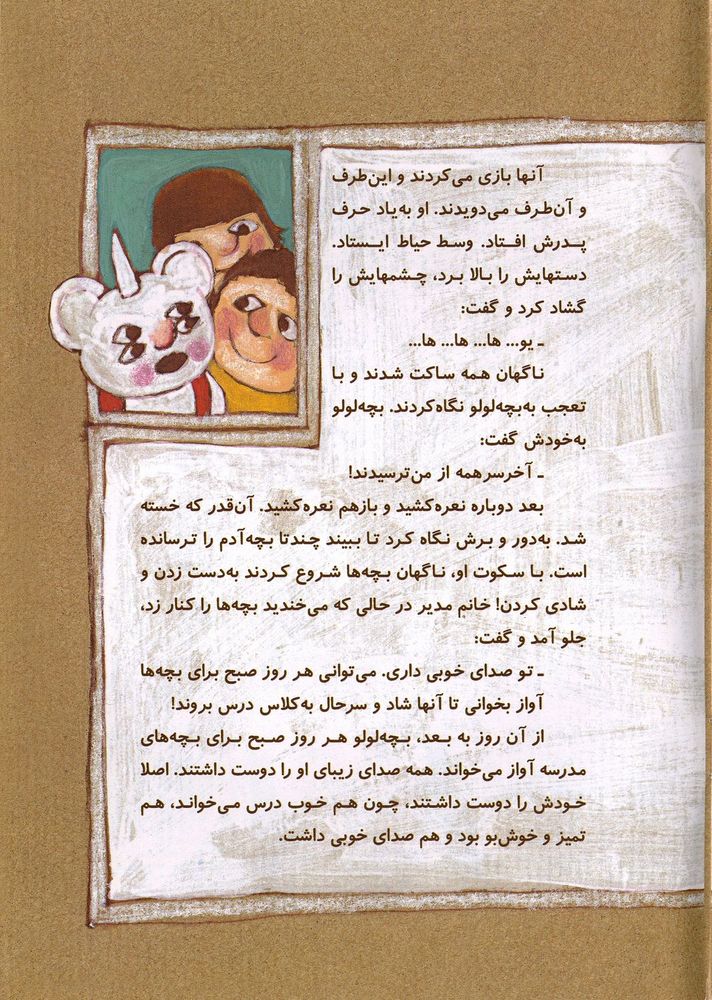 آنها بازی می‌کردند و این‌طرف
و آن‌طرف می‌دویدند. او به‌یاد حرف
پدرش افتاد. وسط حیاط ایستاد.
دستهایش را بالا برد، چشمهایش را
گشاد کرد و گفت:
ـ یو... ها... ها... ها...
ناگهان همه ساکت شدند و با
تعجب به‌بچه‌لولو نگاه‌کردند. بچه‌لولو
به‌خودش گفت:
ـ آخرسرهمه از من‌ترسیدند!
بعد دوباره نعره‌کشید و بازهم نعره‌کشید. آن‌قدر که خسته
شد. به‌دور و برش نگاه کرد تا ببیند چندتا بچه‌آدم را ترسانده
است. با سکوت او، ناگهان بچه‌ها شروع کردند به‌دست زدن و
شادی کردن! خانم مدیر در حالی که می‌خندید بچه‌ها را کنار زد،
جلو آمد و گفت:
ـ تو صدای خوبی داری. می‌توانی هر روز صبح برای بچه‌ها
آواز بخوانی تا آنها شاد و سرحال به‌کلاس درس بروند!
از آن روز به بعد، بچه‌لولو هر روز صبح برای بچه‌های
مدرسه آواز می‌خواند. همه صدای زیبای او را دوست داشتند. اصلا
خودش را دوست داشتند، چون هم خوب درس می‌خواند، هم
تمیز و خوش‌بو بود و هم صدای خوبی داشت.